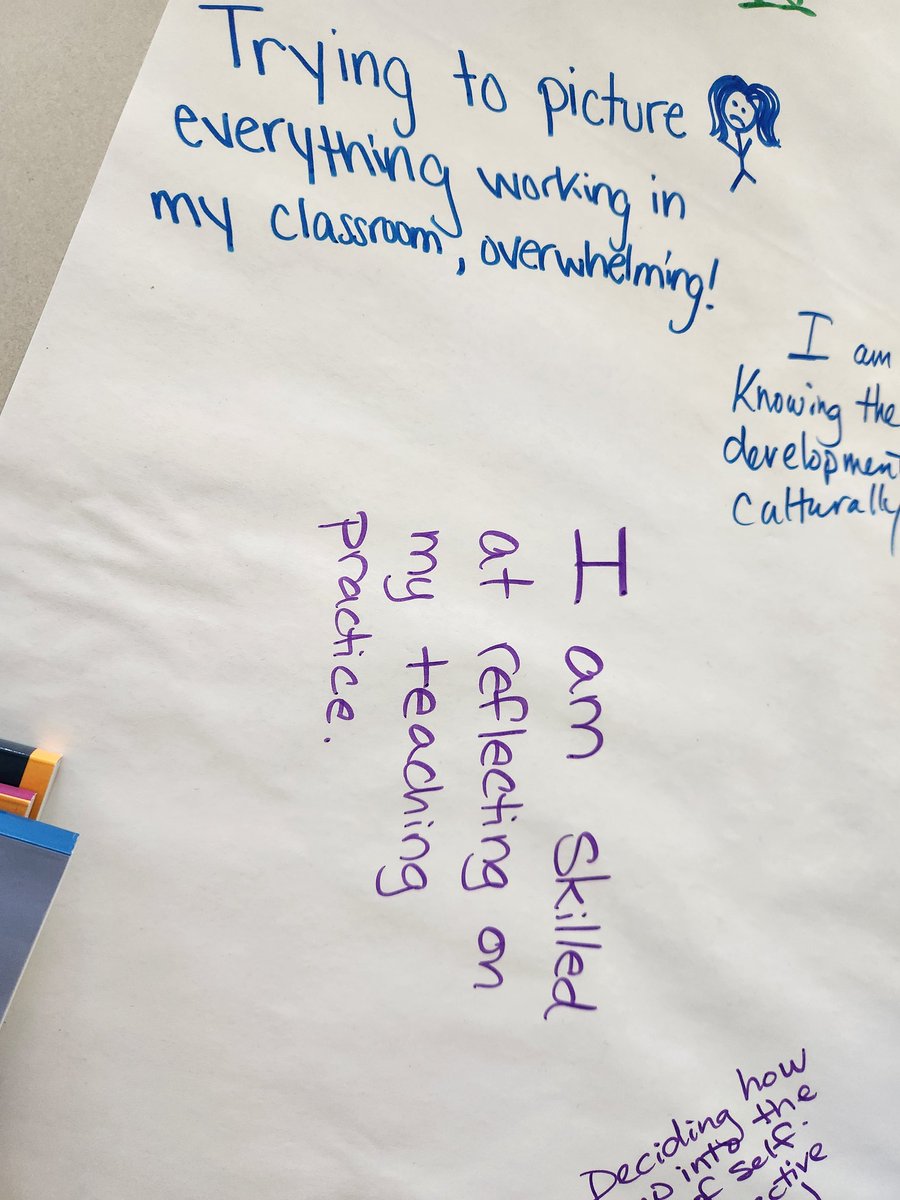 Trying to picture
everything working in
my classroom, overwhelming!
I am
Knowing the
development
culturally
I am skilled
at reflecting on
my teaching
practice.
Deciding how
into the
self.